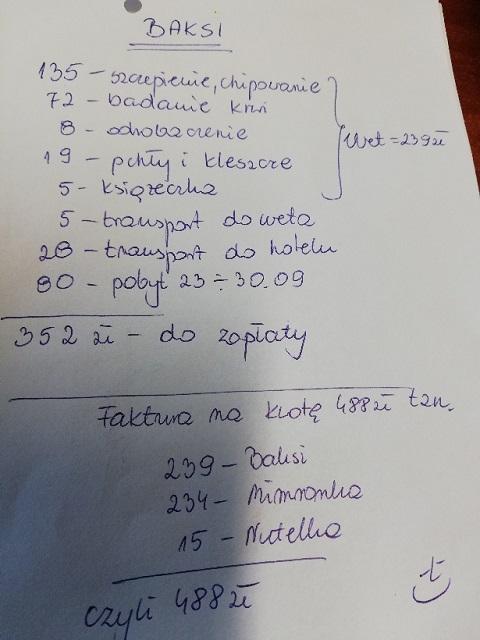 BAKSI
135 - szczepienie, chipowanie
72 - badanie krwi
8 - odrobaczenie
19 - pchły i kleszcze
5 - książeczka
Wet = 239 zł
5 - transport do weta
28 - transport do hotelu
80 - pobyt 23 ÷ 30.09
352 zł - do zapłaty
Faktura na kwotę 488 zł tzn.
239 - Baksi
234 - Mimronka
15 - Nutelka
czyli 488 zł